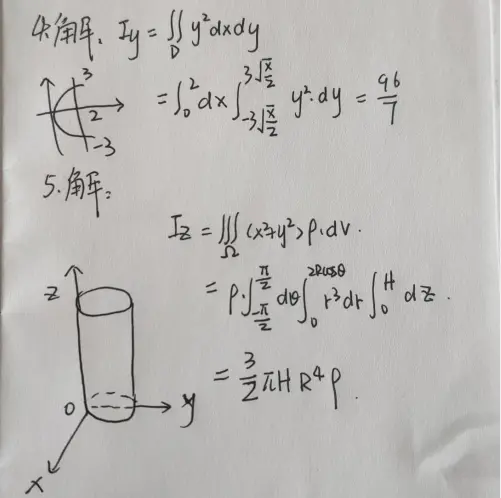 4.解: Iy = ∬_D y²dxdy
= ∫₀² dx ∫_{-3√(x/2)}^{3√(x/2)} y²·dy = 96/7
3
2
-3
5.解:
Iz = ∭_Ω (x²+y²)ρ·dv.
= ρ·∫_{-π/2}^{π/2} dθ ∫₀^{2Rcosθ} r³dr ∫₀^H dz.
= 3/2 πHR⁴ρ.
z
0
y
x